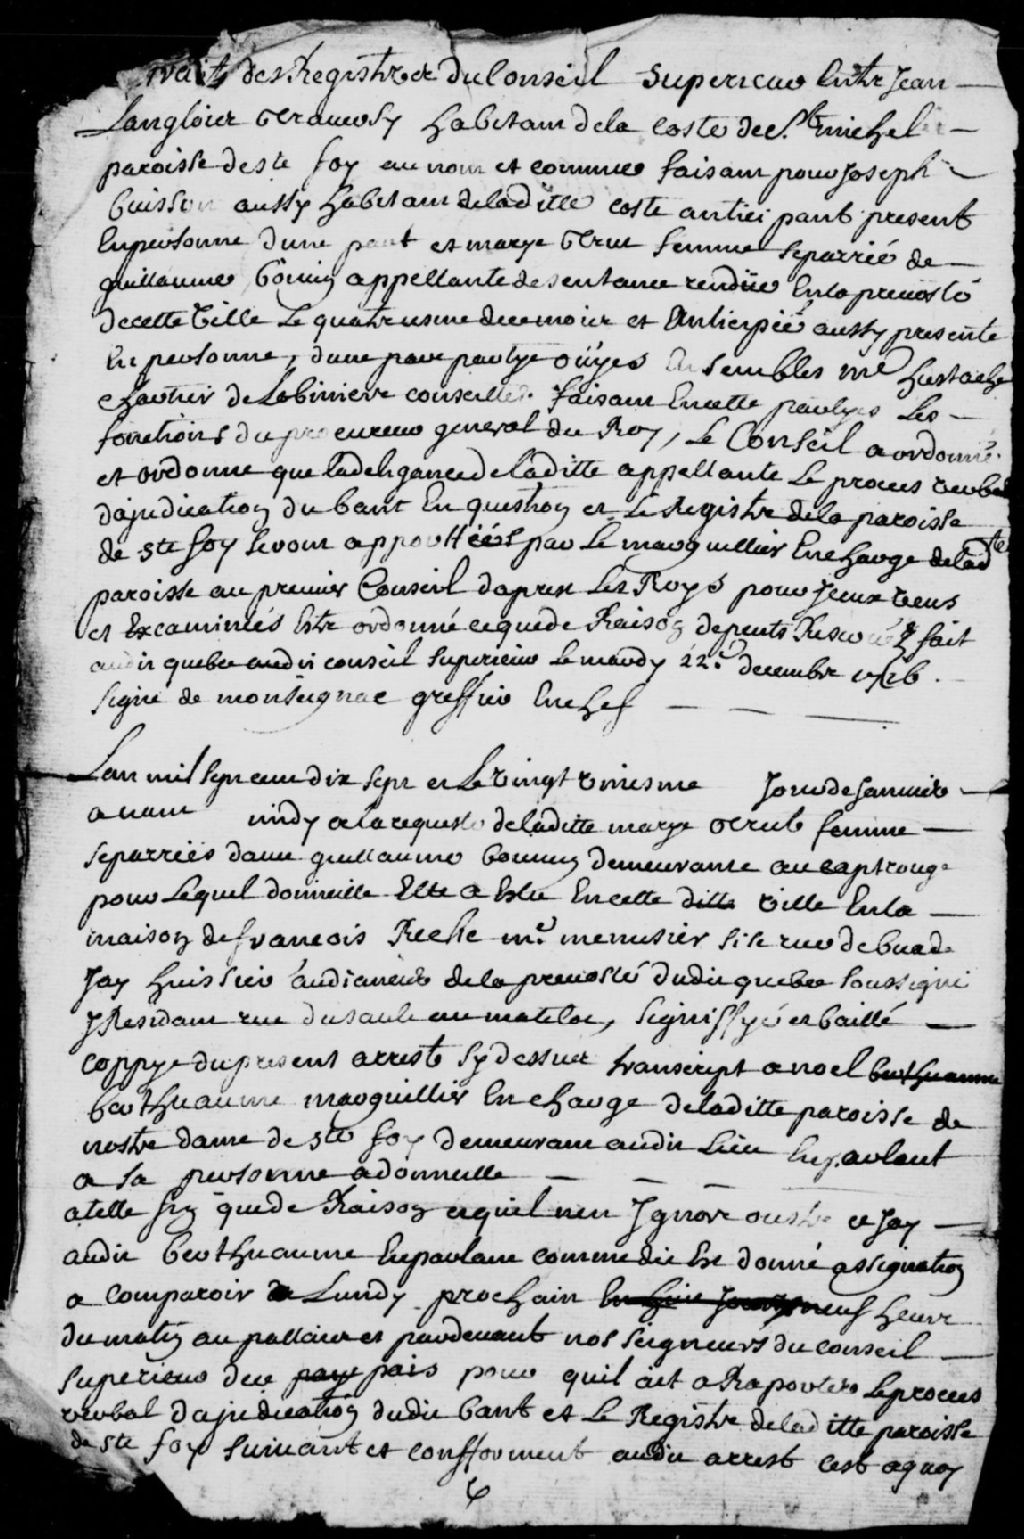 traits des Registre du Conseil superieur Entre Jean
Langlois traversy habitant de la coste de St michel
paroisse de ste foy au nom et comme faisant pour Joseph
buisson aussy habitant de laditte coste anticipant present
En personne dune part et marye femme separrée de
guillaume appellante de sentance rendüe En la prevosté
de cette Ville Le quatriesme de ce mois et Anticipée aussy presente
En personne, dautre part partyes oüyes Ensembles Me Eustache
chartier de Lobiniere conseiller faisant En cette partyes Les
fonctions du procureur general du Roy, Le Conseil a ordonné
et ordonne que la deligance de laditte appellante Le proces verbal
dajudication du banc En question et Le Registre de la paroisse
de ste foy seront apporttées par Le marguillier En charge de lad te
paroisse au premier Conseil dapres Les Roys pour Jceux veus
et Excaminés Estre ordonné ce que de Raison depents Reservéz fait
audit quebec audit conseil superieur Le mardy 22e decembre 1716.
signé de monseignac greffier En chef
Lan mil sept cent dix sept et Le vingt uniesme Jour de Janvier
avant midy a la requeste de laditte marye femme
separrées davec guillaume demeurante au captrouge
pour Lequel domicille Elle a Eslu En cette ditte ville En la
maison de francois Reche me menusier size rue de buade
Jay huissier audiancier de la prevosté dudit quebec soussigné
y Residant rue du sault au matelot, signiffyé et baillé
coppye du present arrest sy dessus transcript a noel berthuaume
berthuaume marguillier En charge de laditte paroisse de
nostre dame de ste foy demeurant audit Lieu En parlant
a sa personne a domicille
a telle fin que de Raison et quil nen Jgnore oustre ce Jay
audit berthuaume En parlant comme dit Est donné assignation
a comparoir Lundy prochain neuf heure
du matin au pallais et pardevant nos seigneurs du conseil
superieur de ce pays pais pour quil ait a Raporter Le proces
verbal dajudication dudit banc et Le Registre de laditte paroisse
de ste foye suivant et confforment audit arrest cest a quoy